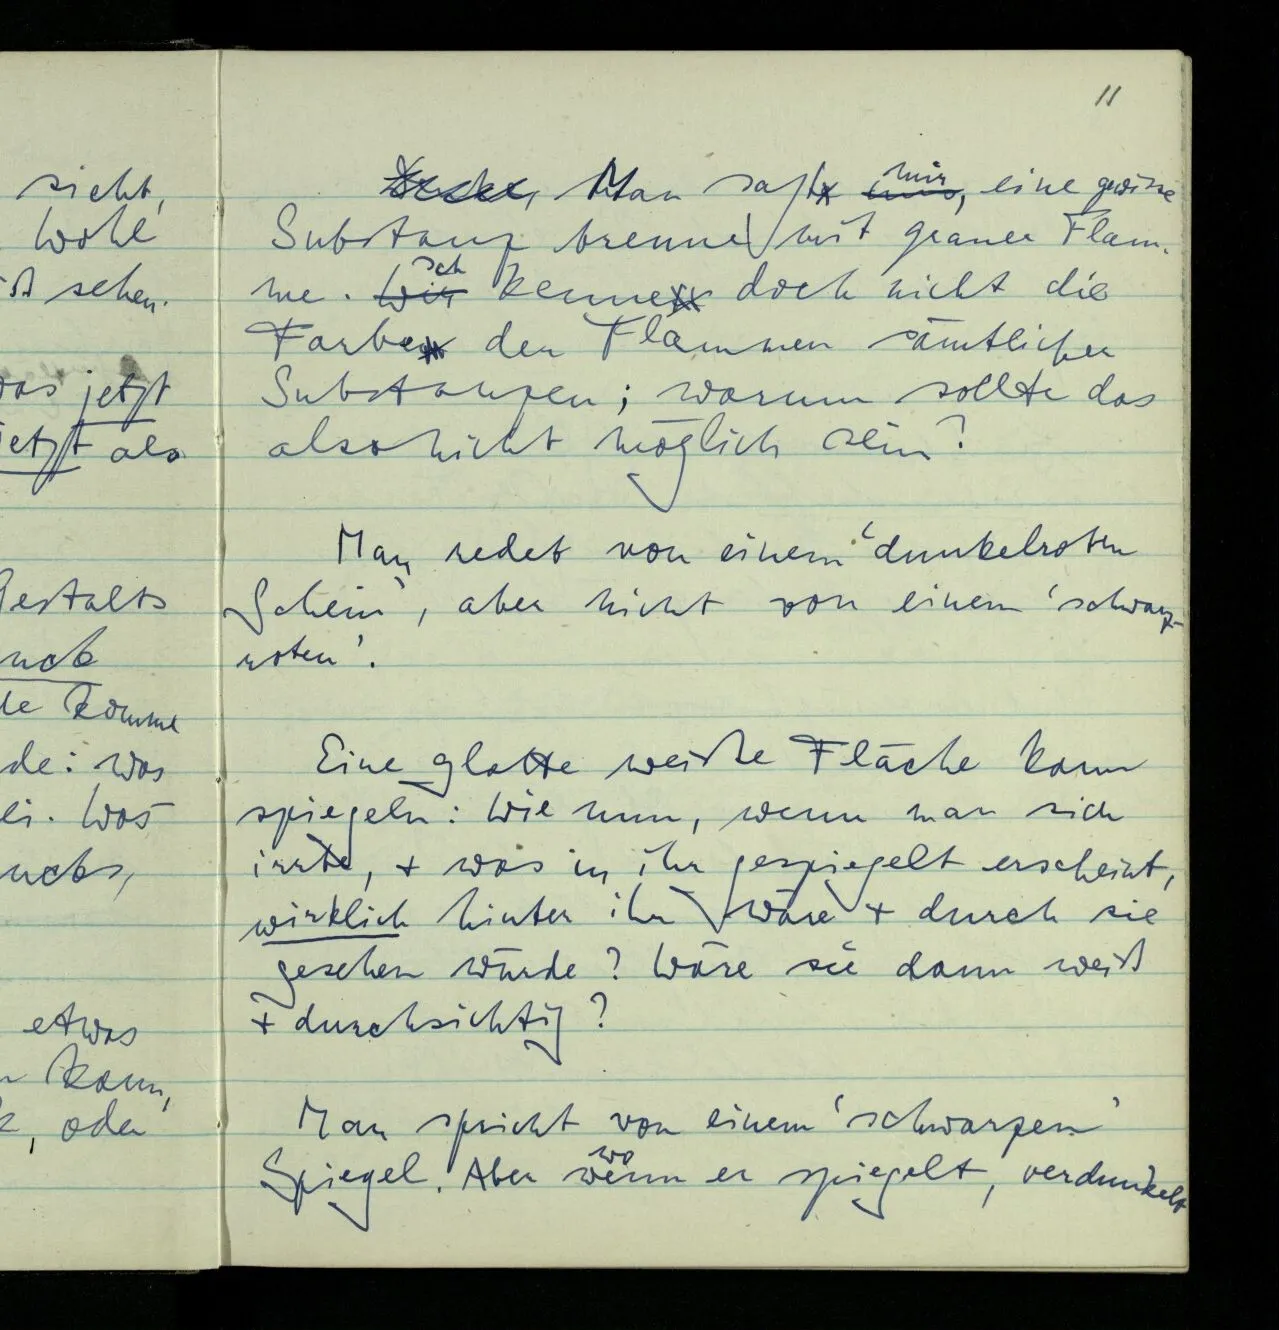 sieht,
wohl
sehen.
was jetzt
jetzt als
Gestalts
komme
de: was
ei. Was
etwas
kann,
, oder
11
Man sagt mir, eine gewisse
Substanz brenne mit grauer Flam-
me. Wir ich kenne doch nicht die
Farben der Flammen sämtlicher
Substanzen; warum sollte das
also nicht möglich sein?
Man redet von einem 'dunkelroten
Schein', aber nicht von einem 'schwarz-
roten'.
Eine glatte weiße Fläche kann
spiegeln: Wie nun, wenn man sich
irrte, + was in ihr gespiegelt erscheint,
wirklich hinter ihr wäre + durch sie
gesehen würde? Wäre sie dann weiß
+ durchsichtig?
Man spricht von einem 'schwarzen'
Spiegel. Aber wo wenn er spiegelt, verdunkelt